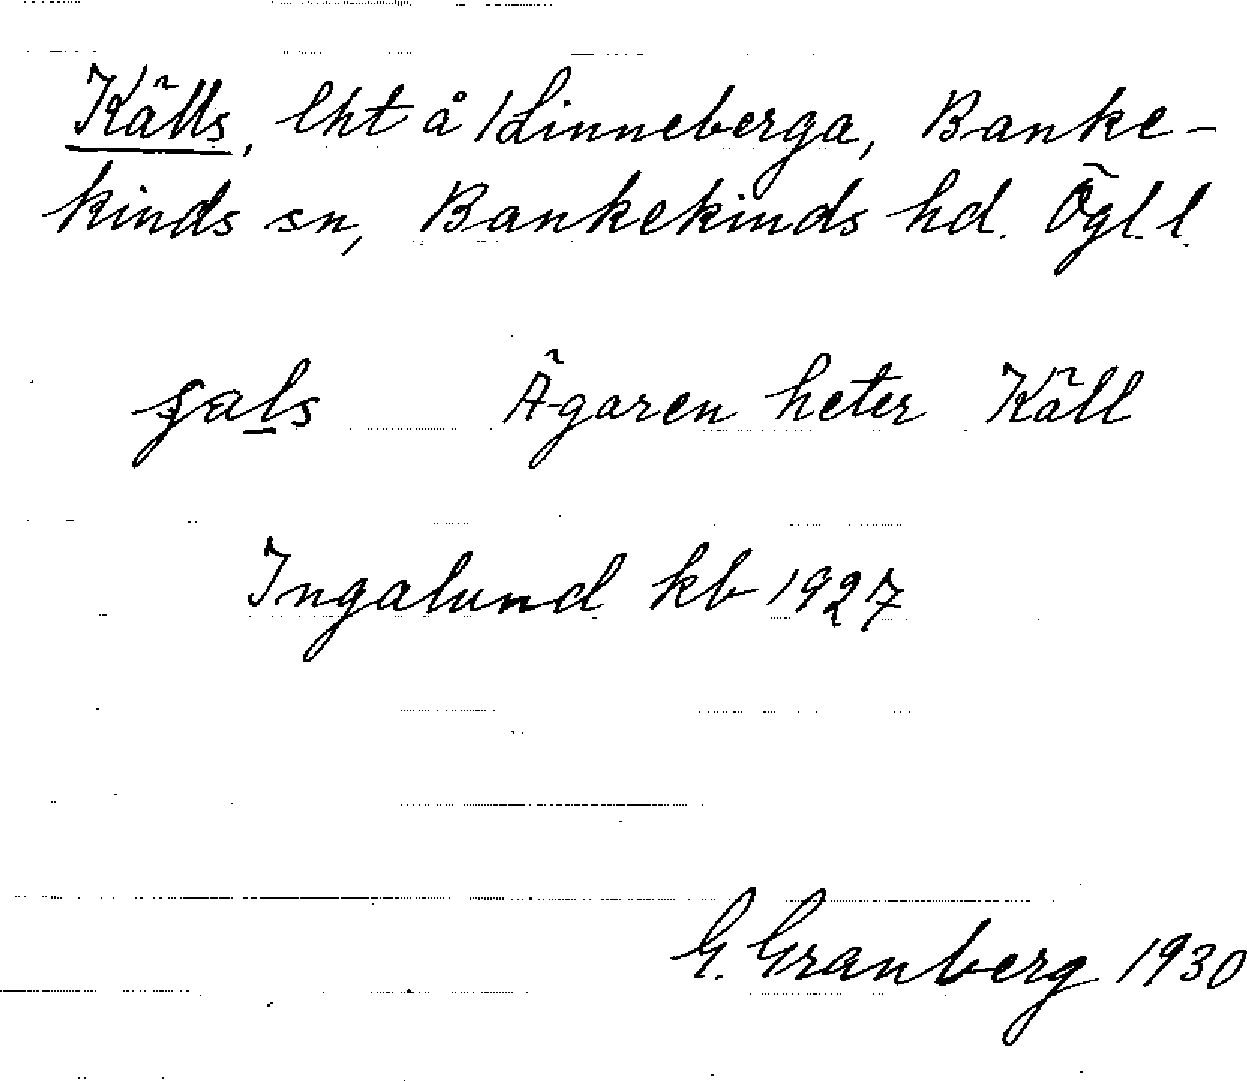 Källs, lht å 1 Linneberga, Banke-
kinds sn, Bankekinds hd. Ögl. l.
Ägaren heter Käll
Ingalund kb 1927
G. Granberg 1930